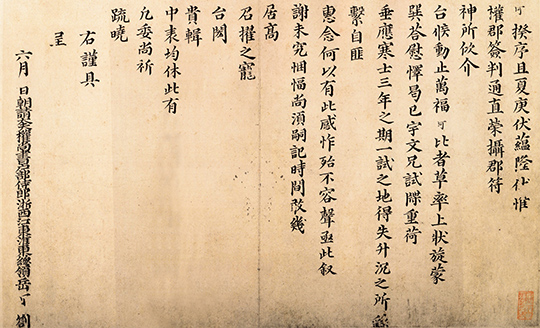 珂揆序且夏庚伏蘊隆恭惟
權郡簽判通直榮攝郡符
神所依介
台候動止萬福珂比者草率上狀旋蒙
巽荅慰懌曷已宇文兄試牒重荷
垂應寒士三年之期一試之地得失升沉之所
繫自匪
惠念何以有此感怍殆不容聲亟此叙
謝未究悃愊尚須嗣記時
居高
召擢之寵
台閎
貴輯
中表均休此有
凡委尚祈
疏曉
右謹具
呈
六月 日朝請大夫權尚書戶部侍郎浙西江東淮東總領岳 珂 劄